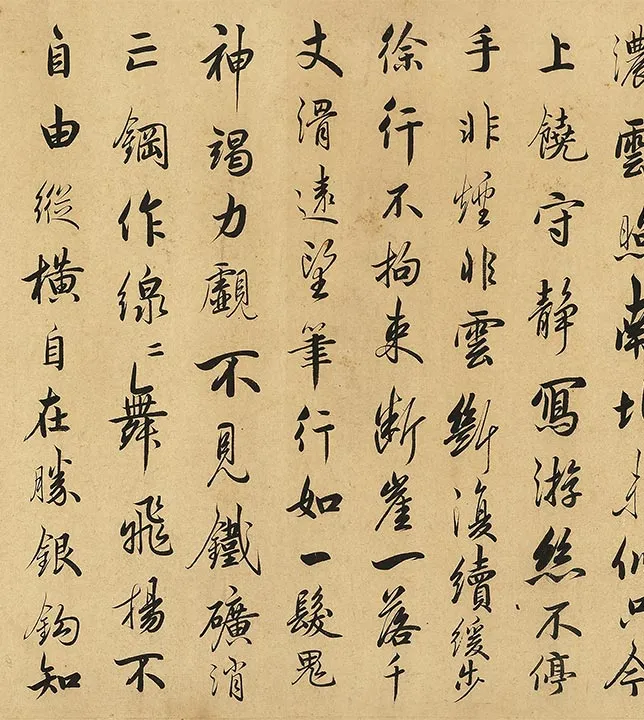 濃雲照南北未似只今
上饒守静寫游絲不停
手非煙非雲斷復續緩步
徐行不拘束断崖一落千
丈滑遠望筆行如一髮鬼
神竭力覷不見鐵礦消
亡鋼作線〻舞飛揚不
自由縱橫自在勝銀鈎知